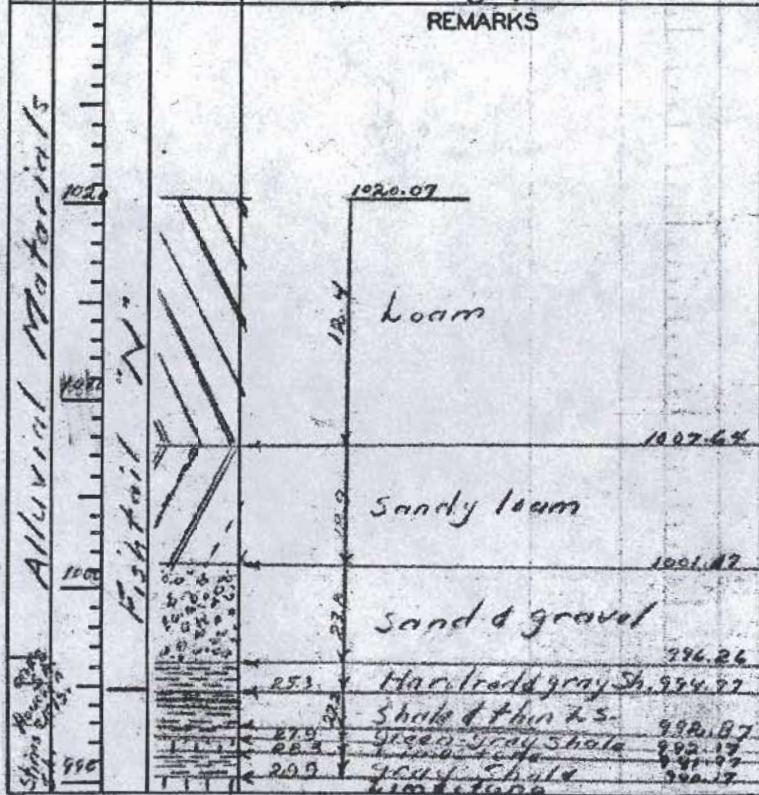 REMARKS
Alluvial Materials
Fishtail "N"
1020
1020.07
12.4
Loam
1007.64
Sandy loam
1001.47
1000
23.8
Sand & gravel
996.26
25.3
Hard red & gray Sh. 994.77
Shale & thin LS.
992.87
27.9
green-gray Shale
992.17
28.3
991.97
29.9
gray Shale
990.17
990
Limestone